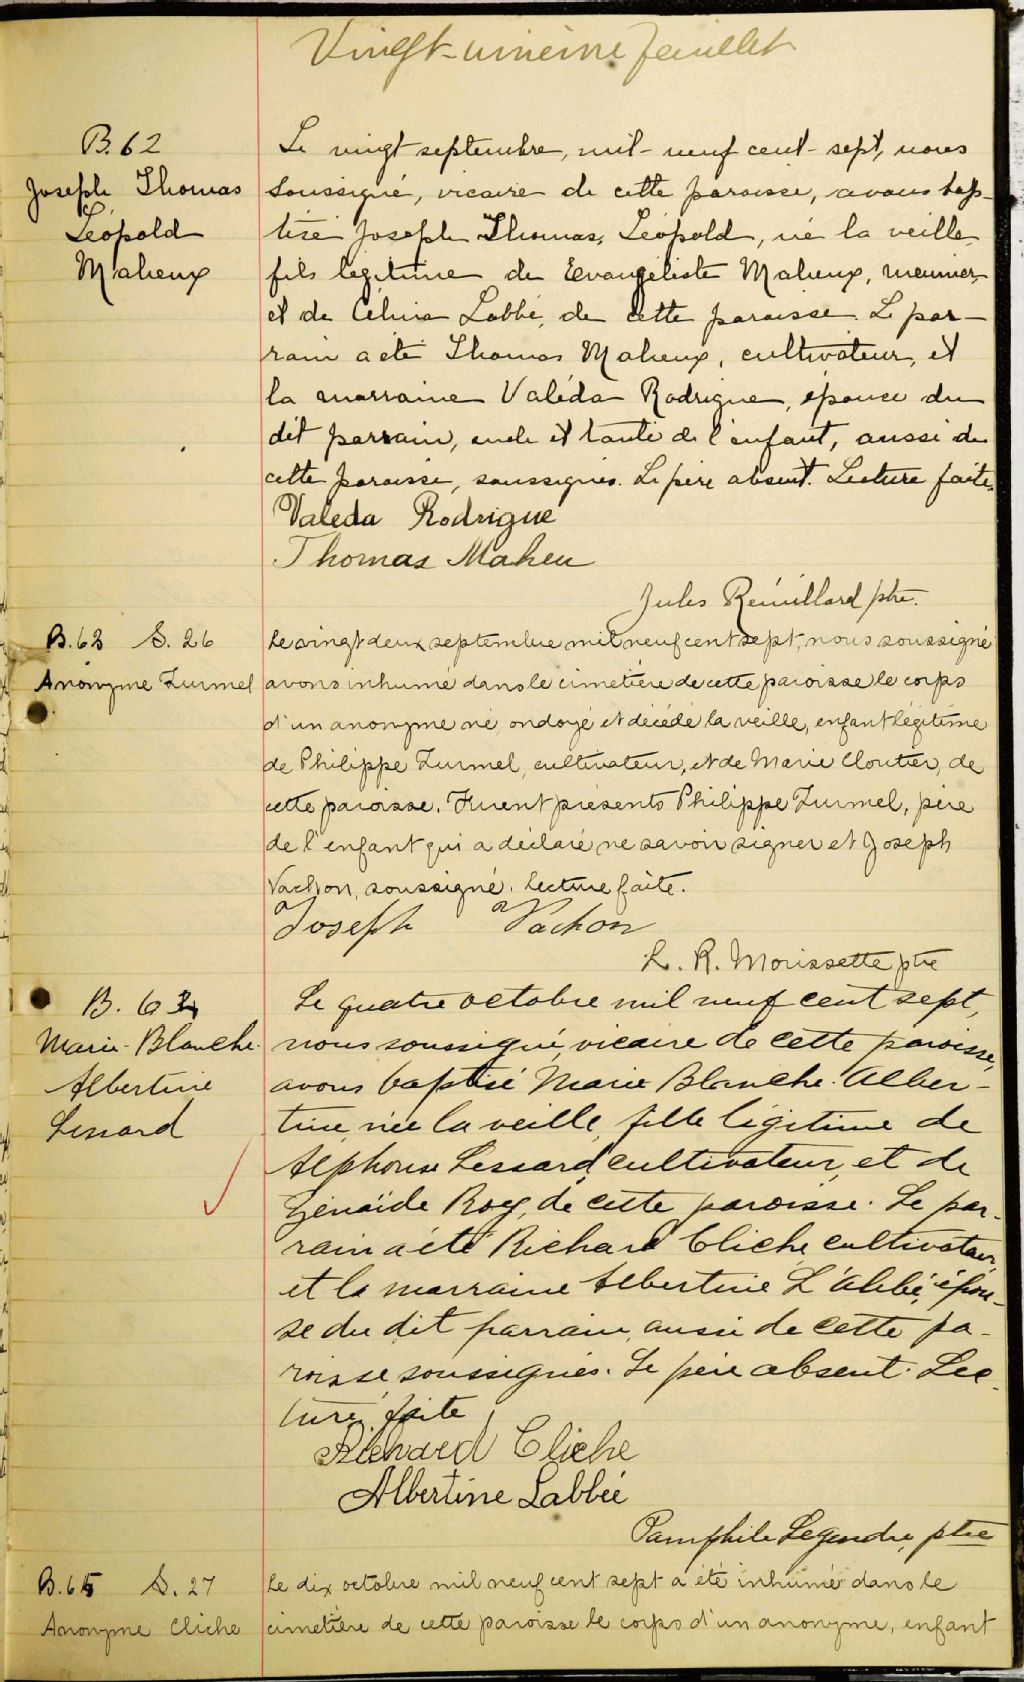 Vingt-unième feuillet
B.62
Joseph Thomas
Léopold
Maheux
Le vingt septembre, mil-neuf cent-sept, nous
soussigné, vicaire de cette paroisse, avons bap-
tisé Joseph Thomas, Léopold, né la veille,
fils légitime de Evangéliste Maheux, meunier,
et de Célina Labbé, de cette paroisse. Le par-
rain a été Thomas Maheux, cultivateur, et
la marraine Valéda Rodrigue, épouse du
dit parrain, oncle et tante de l'enfant, aussi de
cette paroisse, soussignés. Le père absent. Lecture faite.
Valeda Rodrigue
Thomas Maheu
Jules Rémillard ptre.
B.63 S. 26
Anonyme Turmel
Le vingt deux septembre mil neuf cent sept, nous soussigné
avons inhumé dans le cimetière de cette paroisse le corps
d'un anonyme né, ondoyé et décédé la veille, enfant légitime
de Philippe Turmel, cultivateur, et de Marie Cloutier, de
cette paroisse. Furent présents Philippe Turmel, père
de l'enfant qui a déclaré ne savoir signer et Joseph
Vachon, soussigné. Lecture faite.
Joseph Vachon
L. R. Morissette ptre
B. 64
Marie-Blanche-
Albertine
Lessard
Le quatre octobre mil neuf cent sept,
nous soussigné, vicaire de cette paroisse,
avons baptisé Marie Blanche-Alber-
tine, née la veille, fille légitime de
Alphonse Lessard, cultivateur, et de
Zénaïde Roy, de cette paroisse. Le par-
rain a été Richard Cliche cultivateur,
et la marraine Albertine L'abbé, épou-
se du dit parrain, aussi de cette pa-
roisse soussignés. Le père absent. Lec-
ture faite
Richard Cliche
Albertine Labbée
Pamphile Legendre, ptre
B.65 S. 27
Anonyme Cliche
Le dix octobre mil neuf cent sept a été inhumé dans le
cimetière de cette paroisse le corps d'un anonyme, enfant